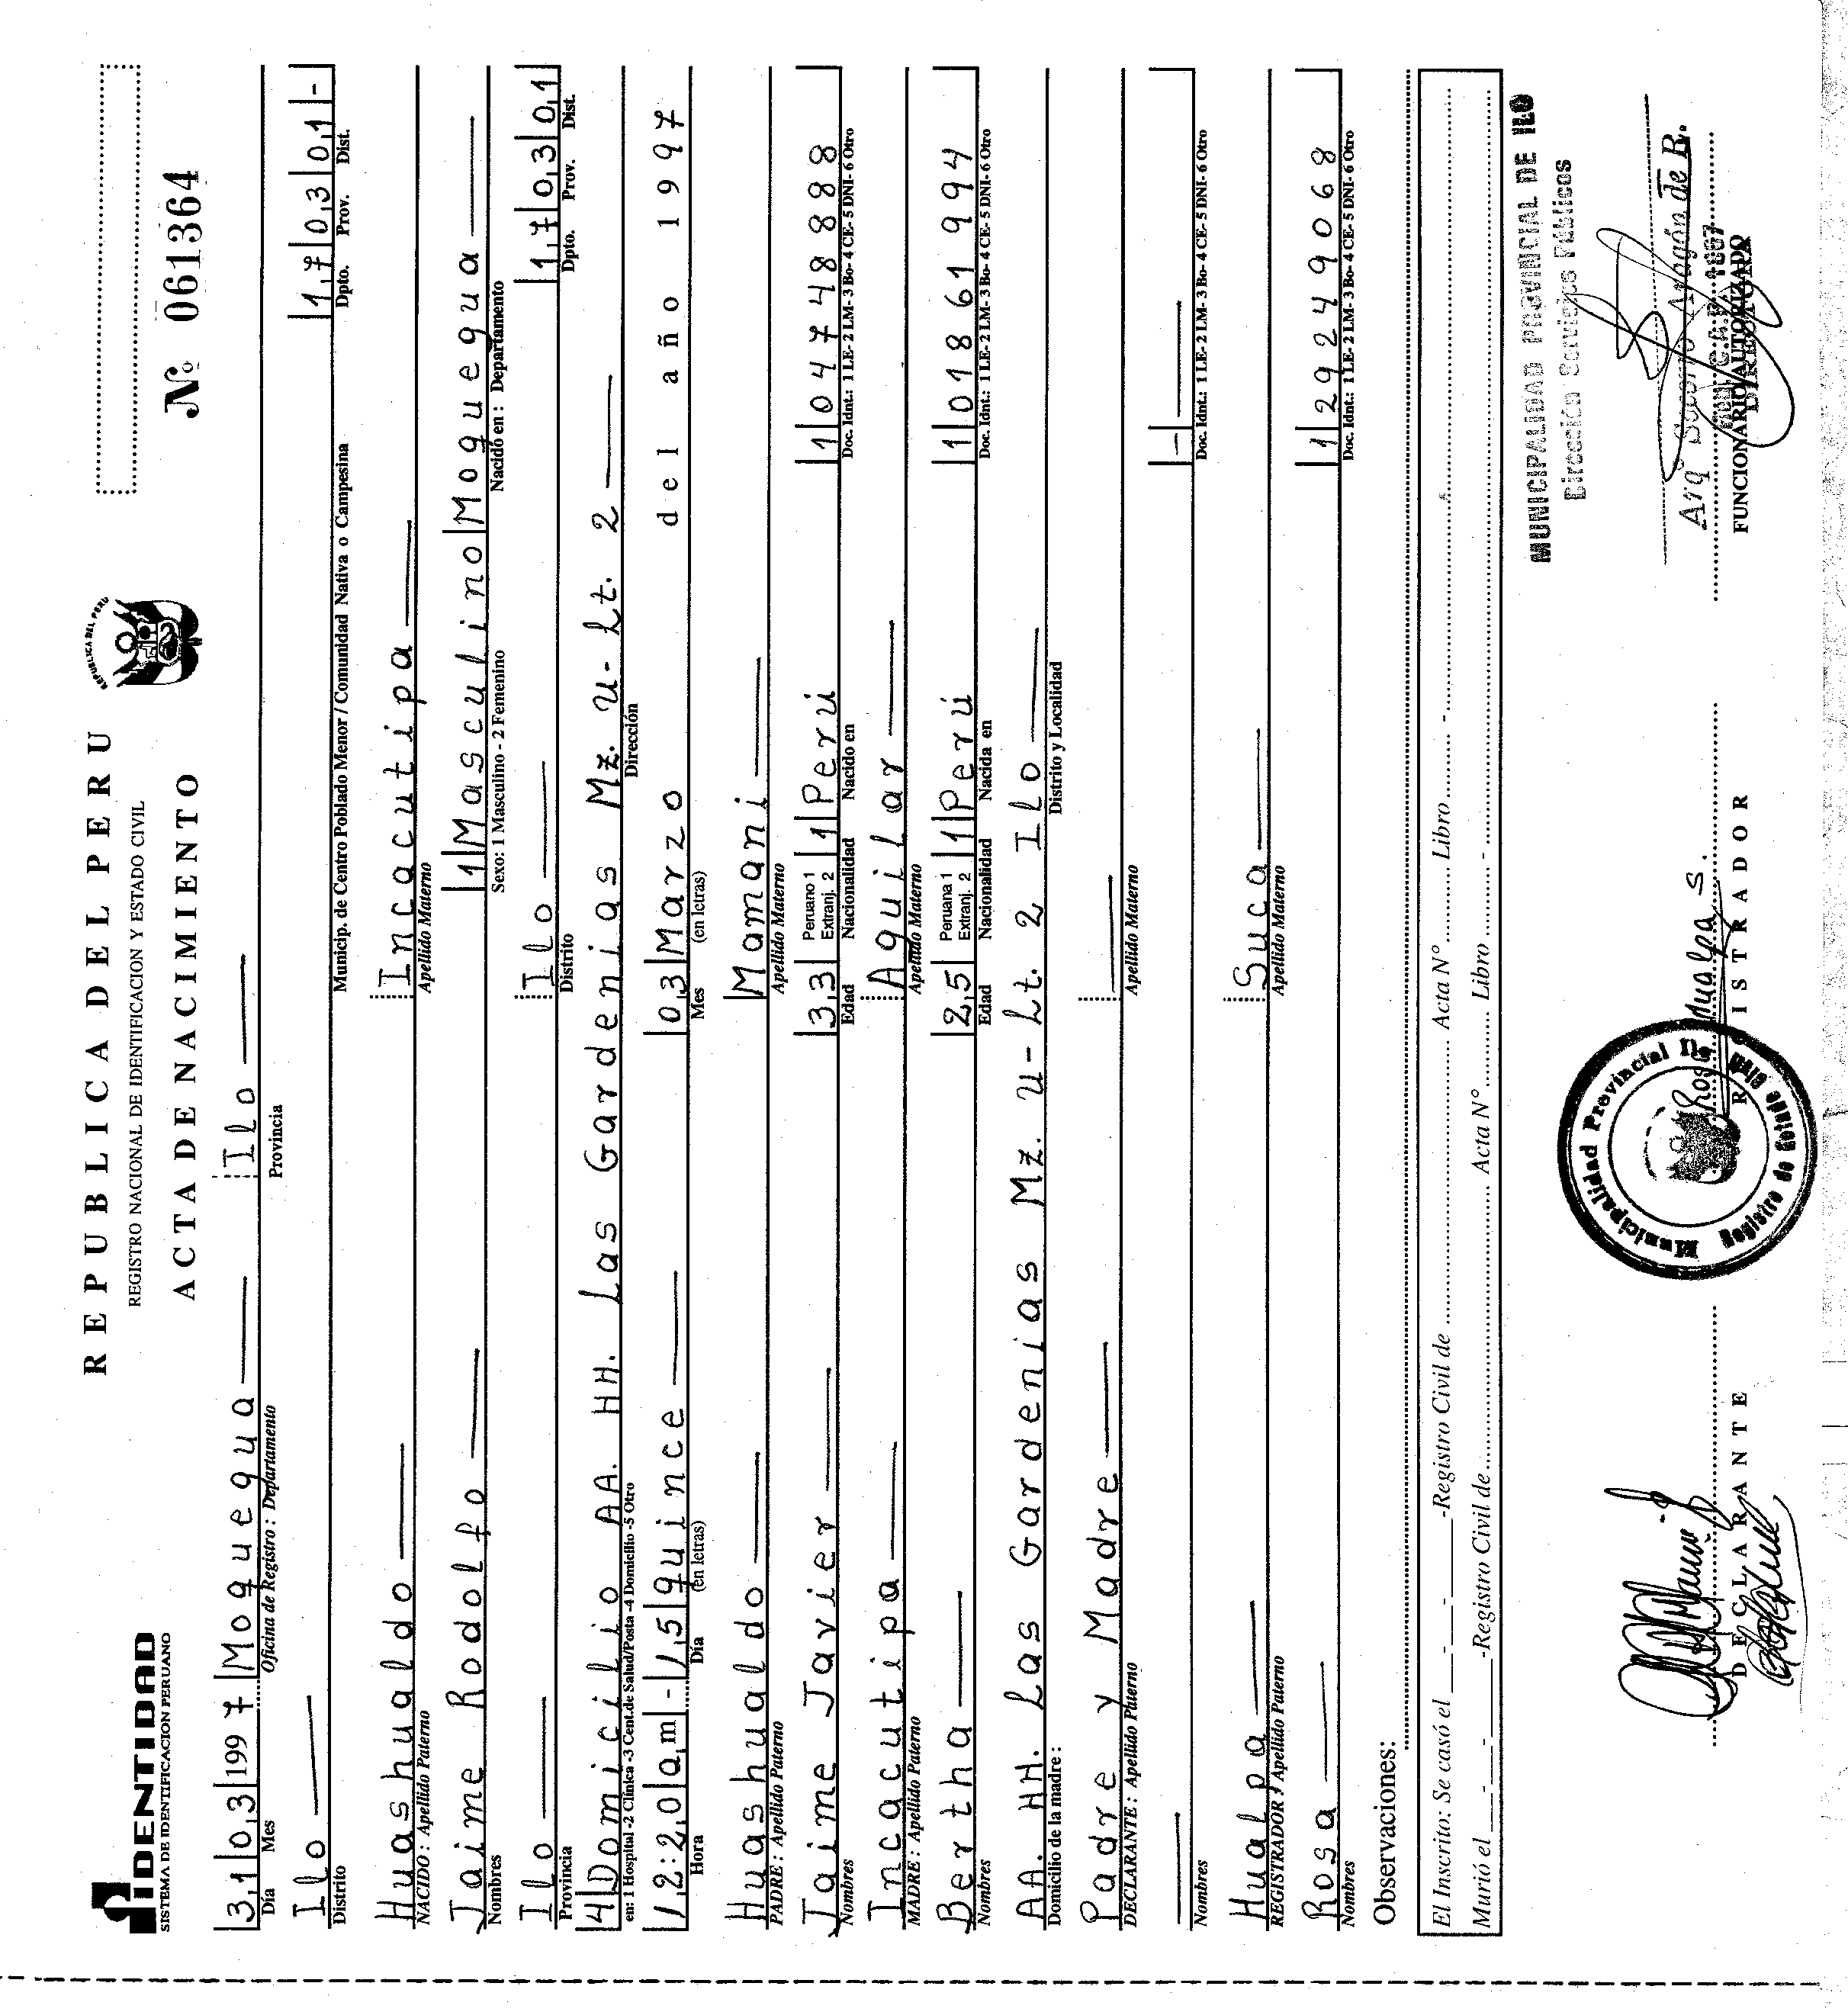 IDENTIDAD
SISTEMA DE IDENTIFICACION PERUANO
REPUBLICA DEL PERU
REPUBLICA DEL PERU
REGISTRO NACIONAL DE IDENTIFICACION Y ESTADO CIVIL
ACTA DE NACIMIENTO
Nº 061364
31 03 1997 Moquegua Ilo
Día Mes Oficina de Registro : Departamento Provincia
Ilo 17 03 01 -
Distrito Municip. de Centro Poblado Menor / Comunidad Nativa o Campesina Dpto. Prov. Dist.
Huashualdo Incacutipa
NACIDO : Apellido Paterno Apellido Materno
Jaime Rodolfo 1 Masculino Moquegua
Nombres Sexo: 1 Masculino - 2 Femenino Nacido en : Departamento
Ilo Ilo 17 03 01
Provincia Distrito Dpto. Prov. Dist.
4 Domicilio AA. HH. Las Gardenias Mz. U- Lt. 2
en: 1 Hospital -2 Clínica -3 Cent.de Salud/Posta -4 Domicilio -5 Otro Dirección
12:20 am - 15 quince 03 Marzo del año 1997
Hora Día (en letras) Mes (en letras)
Huashualdo Mamani
PADRE : Apellido Paterno Apellido Materno
Jaime Javier 33 Peruano 1 Extranj. 2 1 Perú 1 04748888
Nombres Edad Nacionalidad Nacido en Doc. Idnt.: 1 LE- 2 LM- 3 Bo- 4 CE- 5 DNI- 6 Otro
Incacutipa Aguilar
MADRE : Apellido Paterno Apellido Materno
Bertha 25 Peruana 1 Extranj. 2 1 Perú 1 01861994
Nombres Edad Nacionalidad Nacida en Doc. Idnt.: 1 LE- 2 LM- 3 Bo- 4 CE- 5 DNI- 6 Otro
AA. HH. Las Gardenias Mz. U- Lt. 2 Ilo
Domicilio de la madre : Distrito y Localidad
Padre y Madre
DECLARANTE : Apellido Paterno Apellido Materno
-
Nombres Doc. Idnt.: 1 LE- 2 LM- 3 Bo- 4 CE- 5 DNI- 6 Otro
Hualpa Suca
REGISTRADOR / Apellido Paterno Apellido Materno
Rosa 1 29249068
Nombres Doc. Idnt.: 1 LE- 2 LM- 3 Bo- 4 CE- 5 DNI- 6 Otro
Observaciones:
El Inscrito: Se casó el - - -Registro Civil de Acta N° Libro -
Murió el - - -Registro Civil de Acta N° Libro -
MUNICIPALIDAD PROVINCIAL DE ILO
Dirección Servicios Públicos
Municipalidad Provincial Ilo
Registro de Estado Civil
Rosa Hualpa S.
Aragón de R.
DIRECTORA
DECLARANTE REGISTRADOR FUNCIONARIO AUTORIZADO